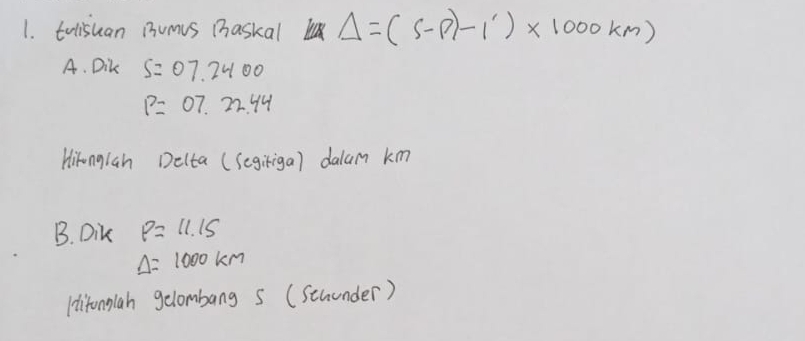 1. tuliskan Rumus Baskal Δ = ( S-P)-1') x 1000 km)
A. Dik S= 07.24 00
P= 07. 22.44
Hitunglah Delta (segitiga) dalam km
B. Dik P= 11.15
Δ= 1000 km
Hitunglah gelombang s (sekunder)